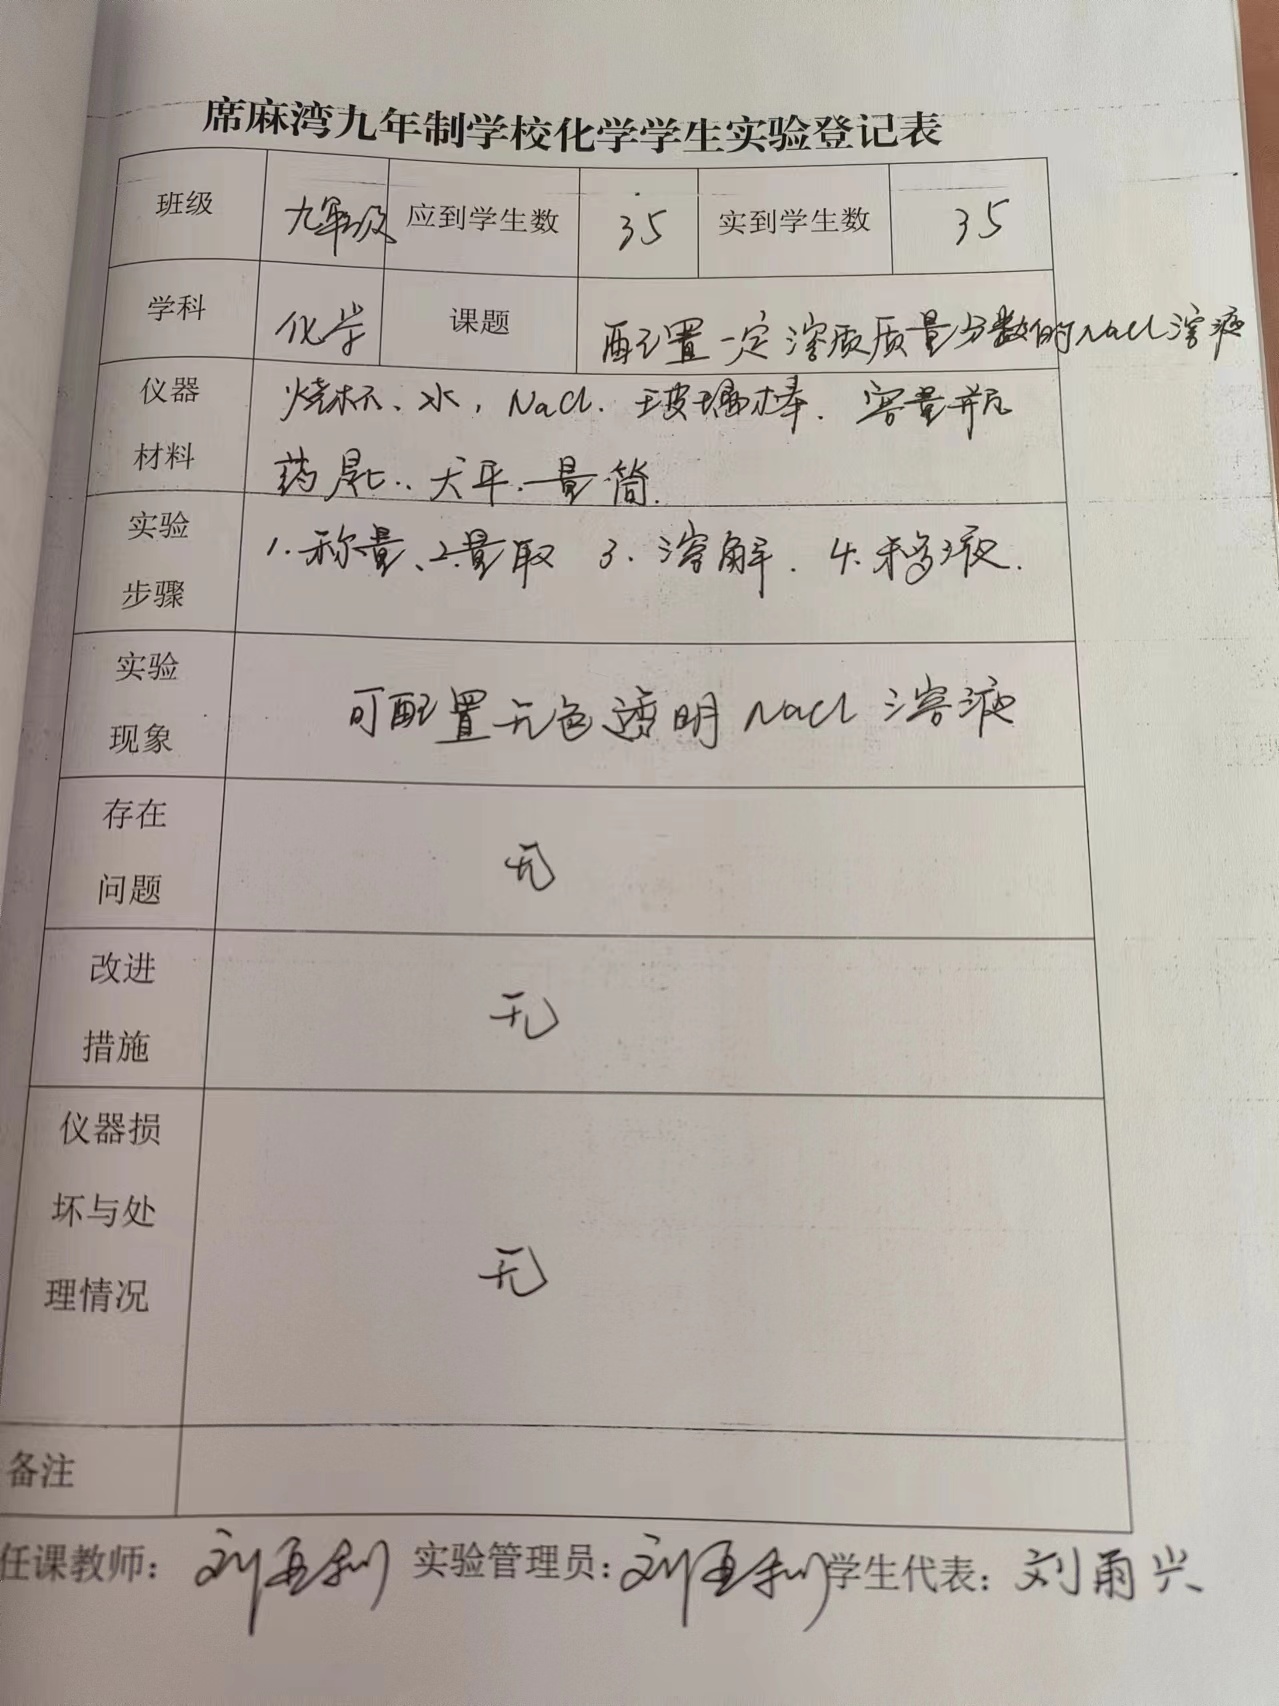 席麻湾九年制学校化学学生实验登记表
班级 九年级 应到学生数 35 实到学生数 35
学科 化学 课题 配置一定溶质质量分数的NaCl溶液
仪器 烧杯、水，NaCl、玻璃棒、容量瓶
材料 药匙、天平、量筒.
实验 1.称量、2.量取 3.溶解. 4.移液.
步骤
实验
可配置无色透明NaCl溶液
现象
存在
无
问题
改进
无
措施
仪器损
坏与处
无
理情况
备注
任课教师： 实验管理员： 学生代表：刘雨兴